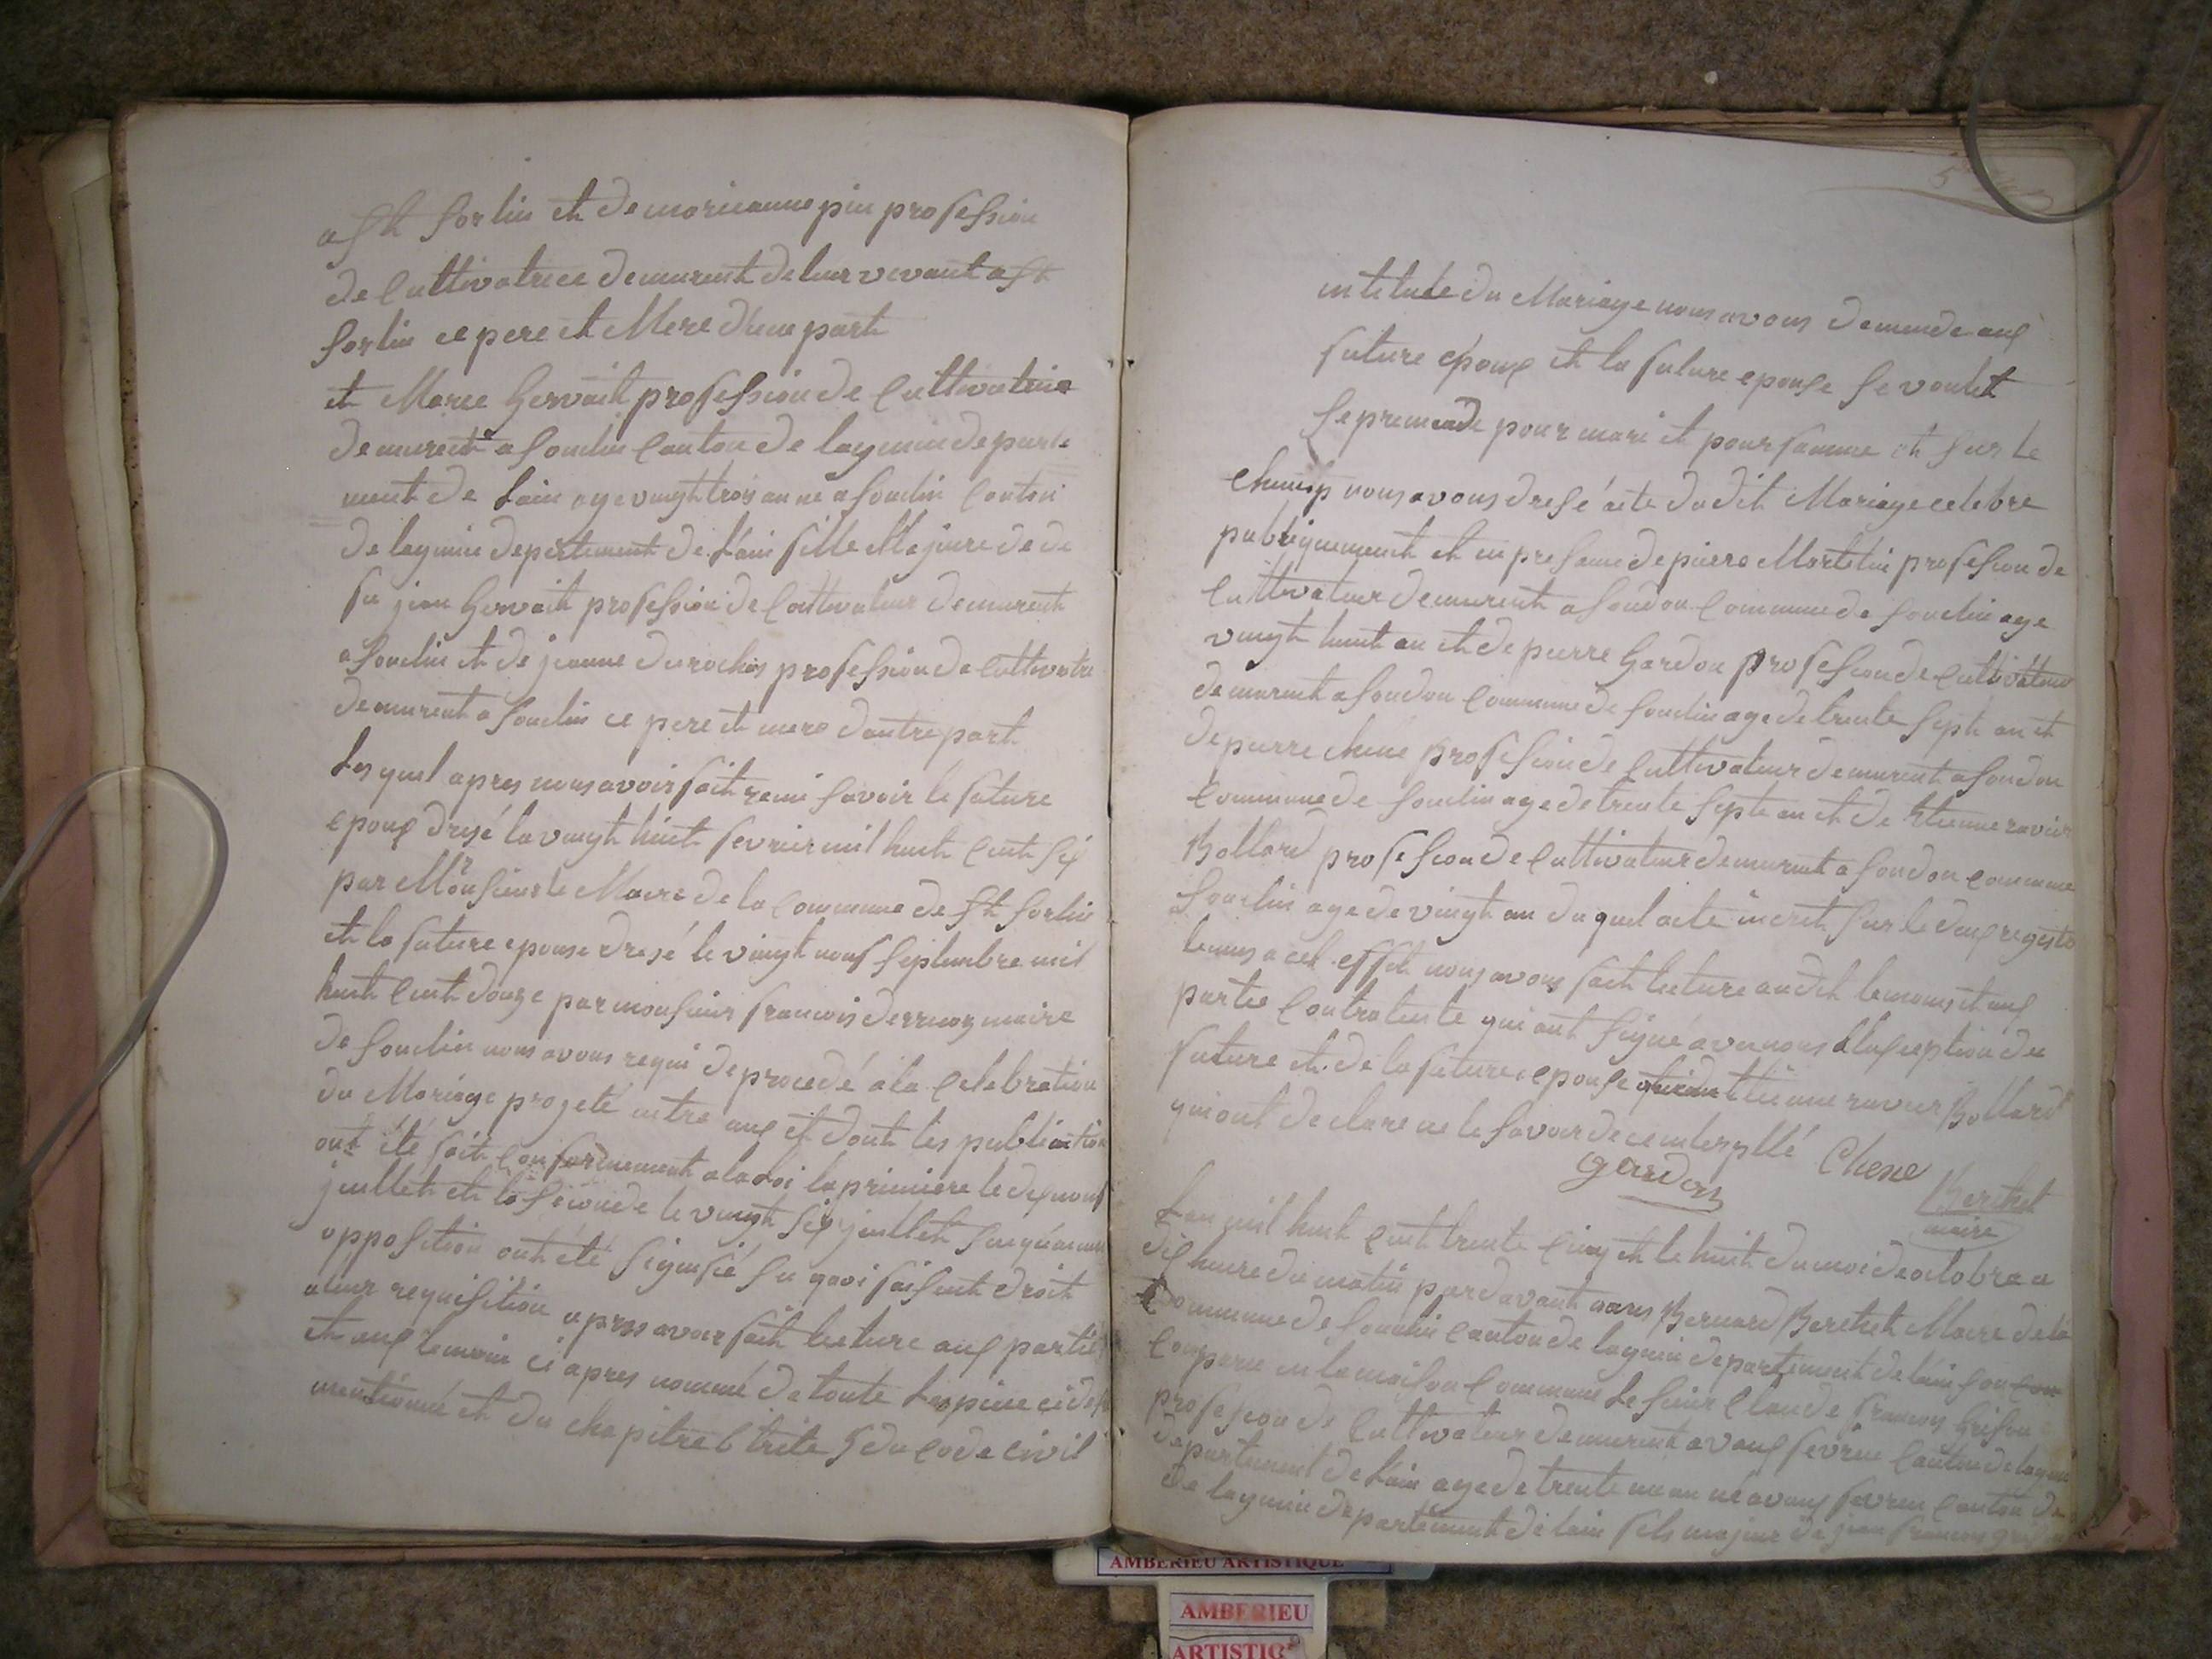 a St Sorlin et de marieanne pin profession
de Cultivatrice demurent de leur vevant a St
Sorlin ce pere et Mere d'une part
et Marie Gervait profession de Cultivatrice
demurent a Souclin Canton de lagnieu departe
ment de Lain age vinght trois an ne a Souclin Canton
de lagnieu departement de Lain fille Majeure de de
fu jean Gervait profession de Cultivateur demurent
a Souclin et de jeanne durochas profession de Cultivatri
demurent a Souclin ce pere et mere dautre part
Lesquel apres nous avoir fait remi savoir le future
epoux dresé la vinght huit fevrier mil huit Cent six
par Monsieur le Maire de la Commune de St Sorlin
et la future epouse dresé le vinght neuf Septembre mil
huit Cent douze par monsieur francois maire
de Souclin nous avons requi de procedé a la Celebration
du Mariage projeté entre eux et dont les publication
ont été fait Conformement a la Loi la premiere le dixneuf
juillet et la seconde le vinght six juillet
opposition ont été signifié su quoi faisent droit
a leur requisition apres avoir fait lecture aux partie
et aux temoin ci apres nommé de toute Les piece ci de
mentionné et du chapitre 6 titre 5 du Code Civil
intitulé du Mariage nous avons demende aux
future époux et la future epouse se voulet
se prennde pour mari et pour famme et sur le
Champ nous avons dresé acte dudit Mariage celebre
publiquement et en presance de pierre Martelin profession de
Cultivateur demurent a Soudon Commune de Souclin age
vinght huit an et de pierre Gardon profession de Cultivateur
demurent a Soudon Commune de Souclin age de trente sept an et
de pierre Chene profession de Cultivateur demurent a Soudon
Commune de Souclin age de trente septe an et de Etienne ravier
Bollard profession de Cultivateur demurent a Soudon Commune
Souclin age de vinght an du quel acte incrit sur le deux registre
tenus a cet effet nous avons fait lecture audit temoins et aux
partie Contratente qui ont signé avec nous a Lexception du
future et de la future epouse Etienne ravier Bollard
qui ont declare ne le savoir de ce enterpellé Chene
gardon
Berthet
maire
Lan mil huit Cent trente Cinq et le huit du moi de octobre a
dix heure du matin par davant nous Bernard Berthet Maire de la
Commune de Souclin Canton de lagnieu departement de lain
Comparu en la maison Commune Le sieur Claude francois Grison
profession de Cultivateur demurent a vaux fevrieu Canton de lagnieu
departement de Lain age de trente un an né a vaux fevreu Canton de
de lagnieu departement de lain fils majeur de jean francois